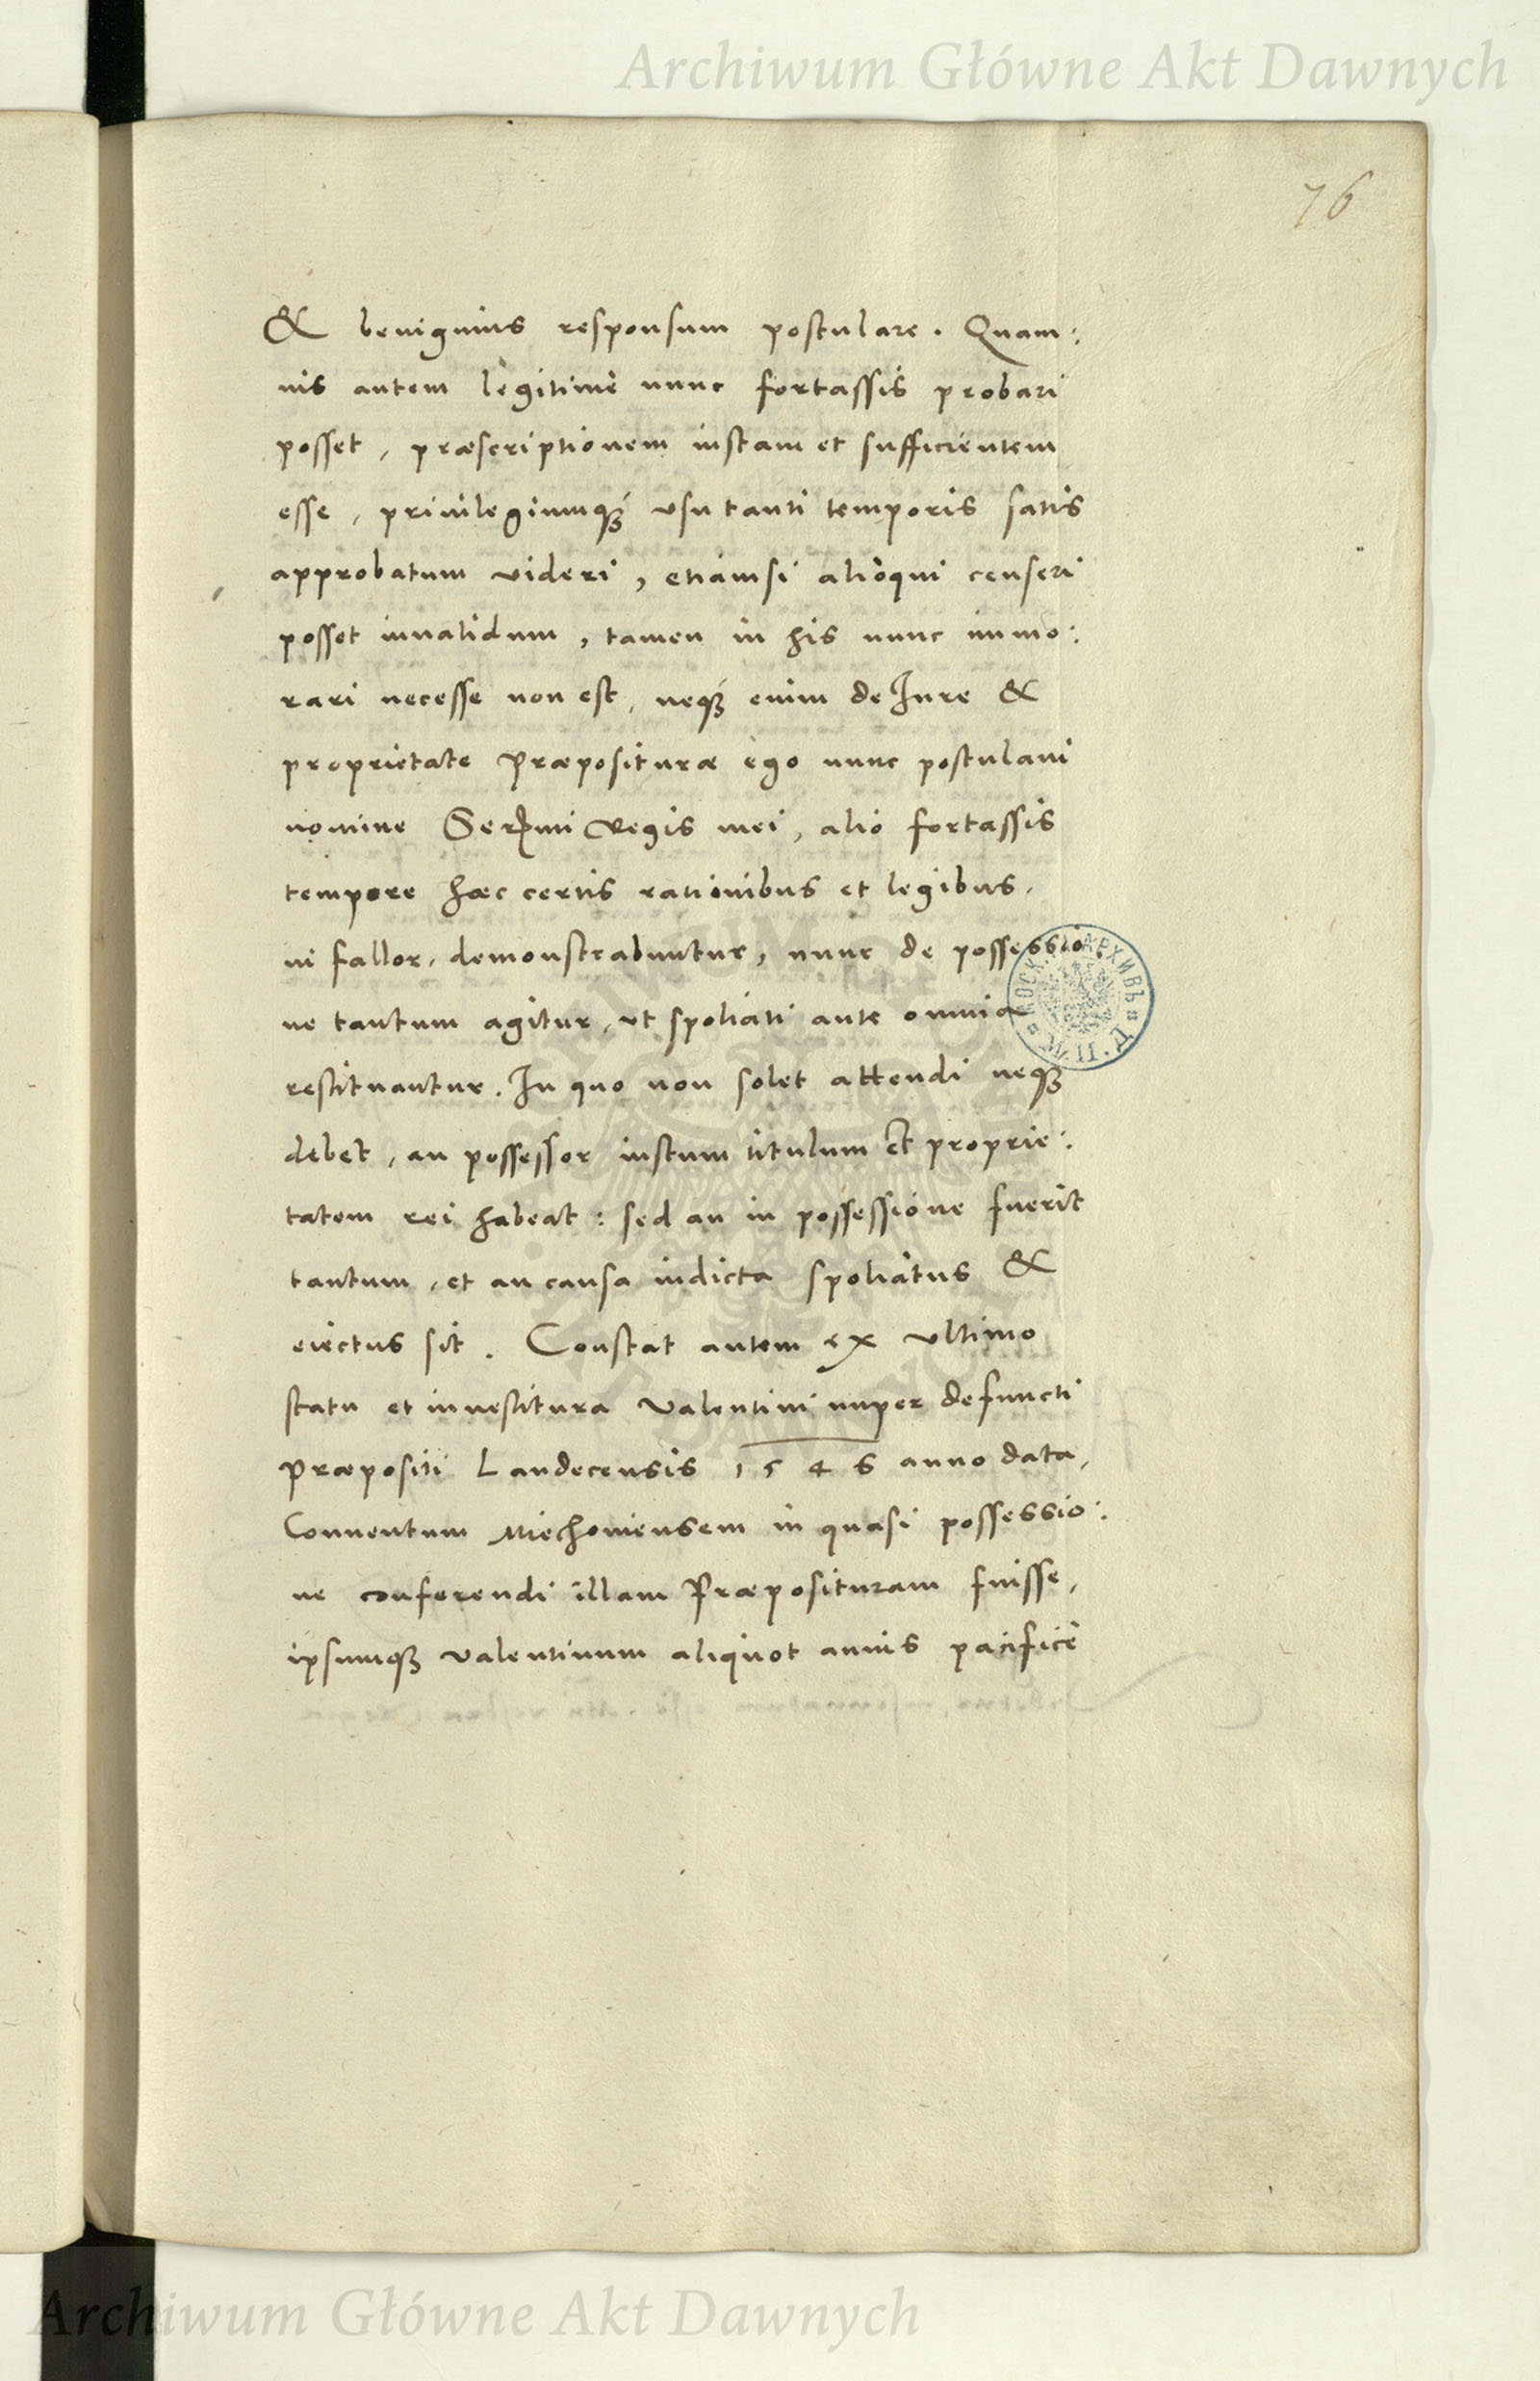 Archiwum Główne Akt Dawnych
76
& benignius responsum postulare. Quam:
uis autem legitime nunc fortassis probari
posset, præscriptionem iustam et sufficientem
esse, priuilegiumq́ʒ vsu tanti temporis satis
approbatum videri, etiamsi alioqui censeri
posset inualidum, tamen in his nunc immo:
rari necesse non est, neq́ʒ enim de Iure &
proprietate Præposituræ ego nunc postulaui
nomine Serᵐⁱ Regis mei, alio fortassis
tempore hæc certis rationibus et legibus,
ni fallor, demonstrabuntur, nunc de possessio:
ne tantum agitur, vt spoliati ante omnia
restituantur. In quo non solet attendi neqʒ
debet, an possessor iustum titulum et proprie:
tatem rei habeat: sed an in possessione fuerit
tantum, et an causa indicta spoliatus &
eiectus sit. Constat autem ex vltimo
statu et inuestitura Valentini nuper defuncti
Præpositi Landecensis 1546 anno data,
Conuentum Miechouiensem in quasi possessio:
ne conferendi illam Præposituram fuisse,
ipsumqʒ Valentinum aliquot annis pacifice
Archiwum Główne Akt Dawnych